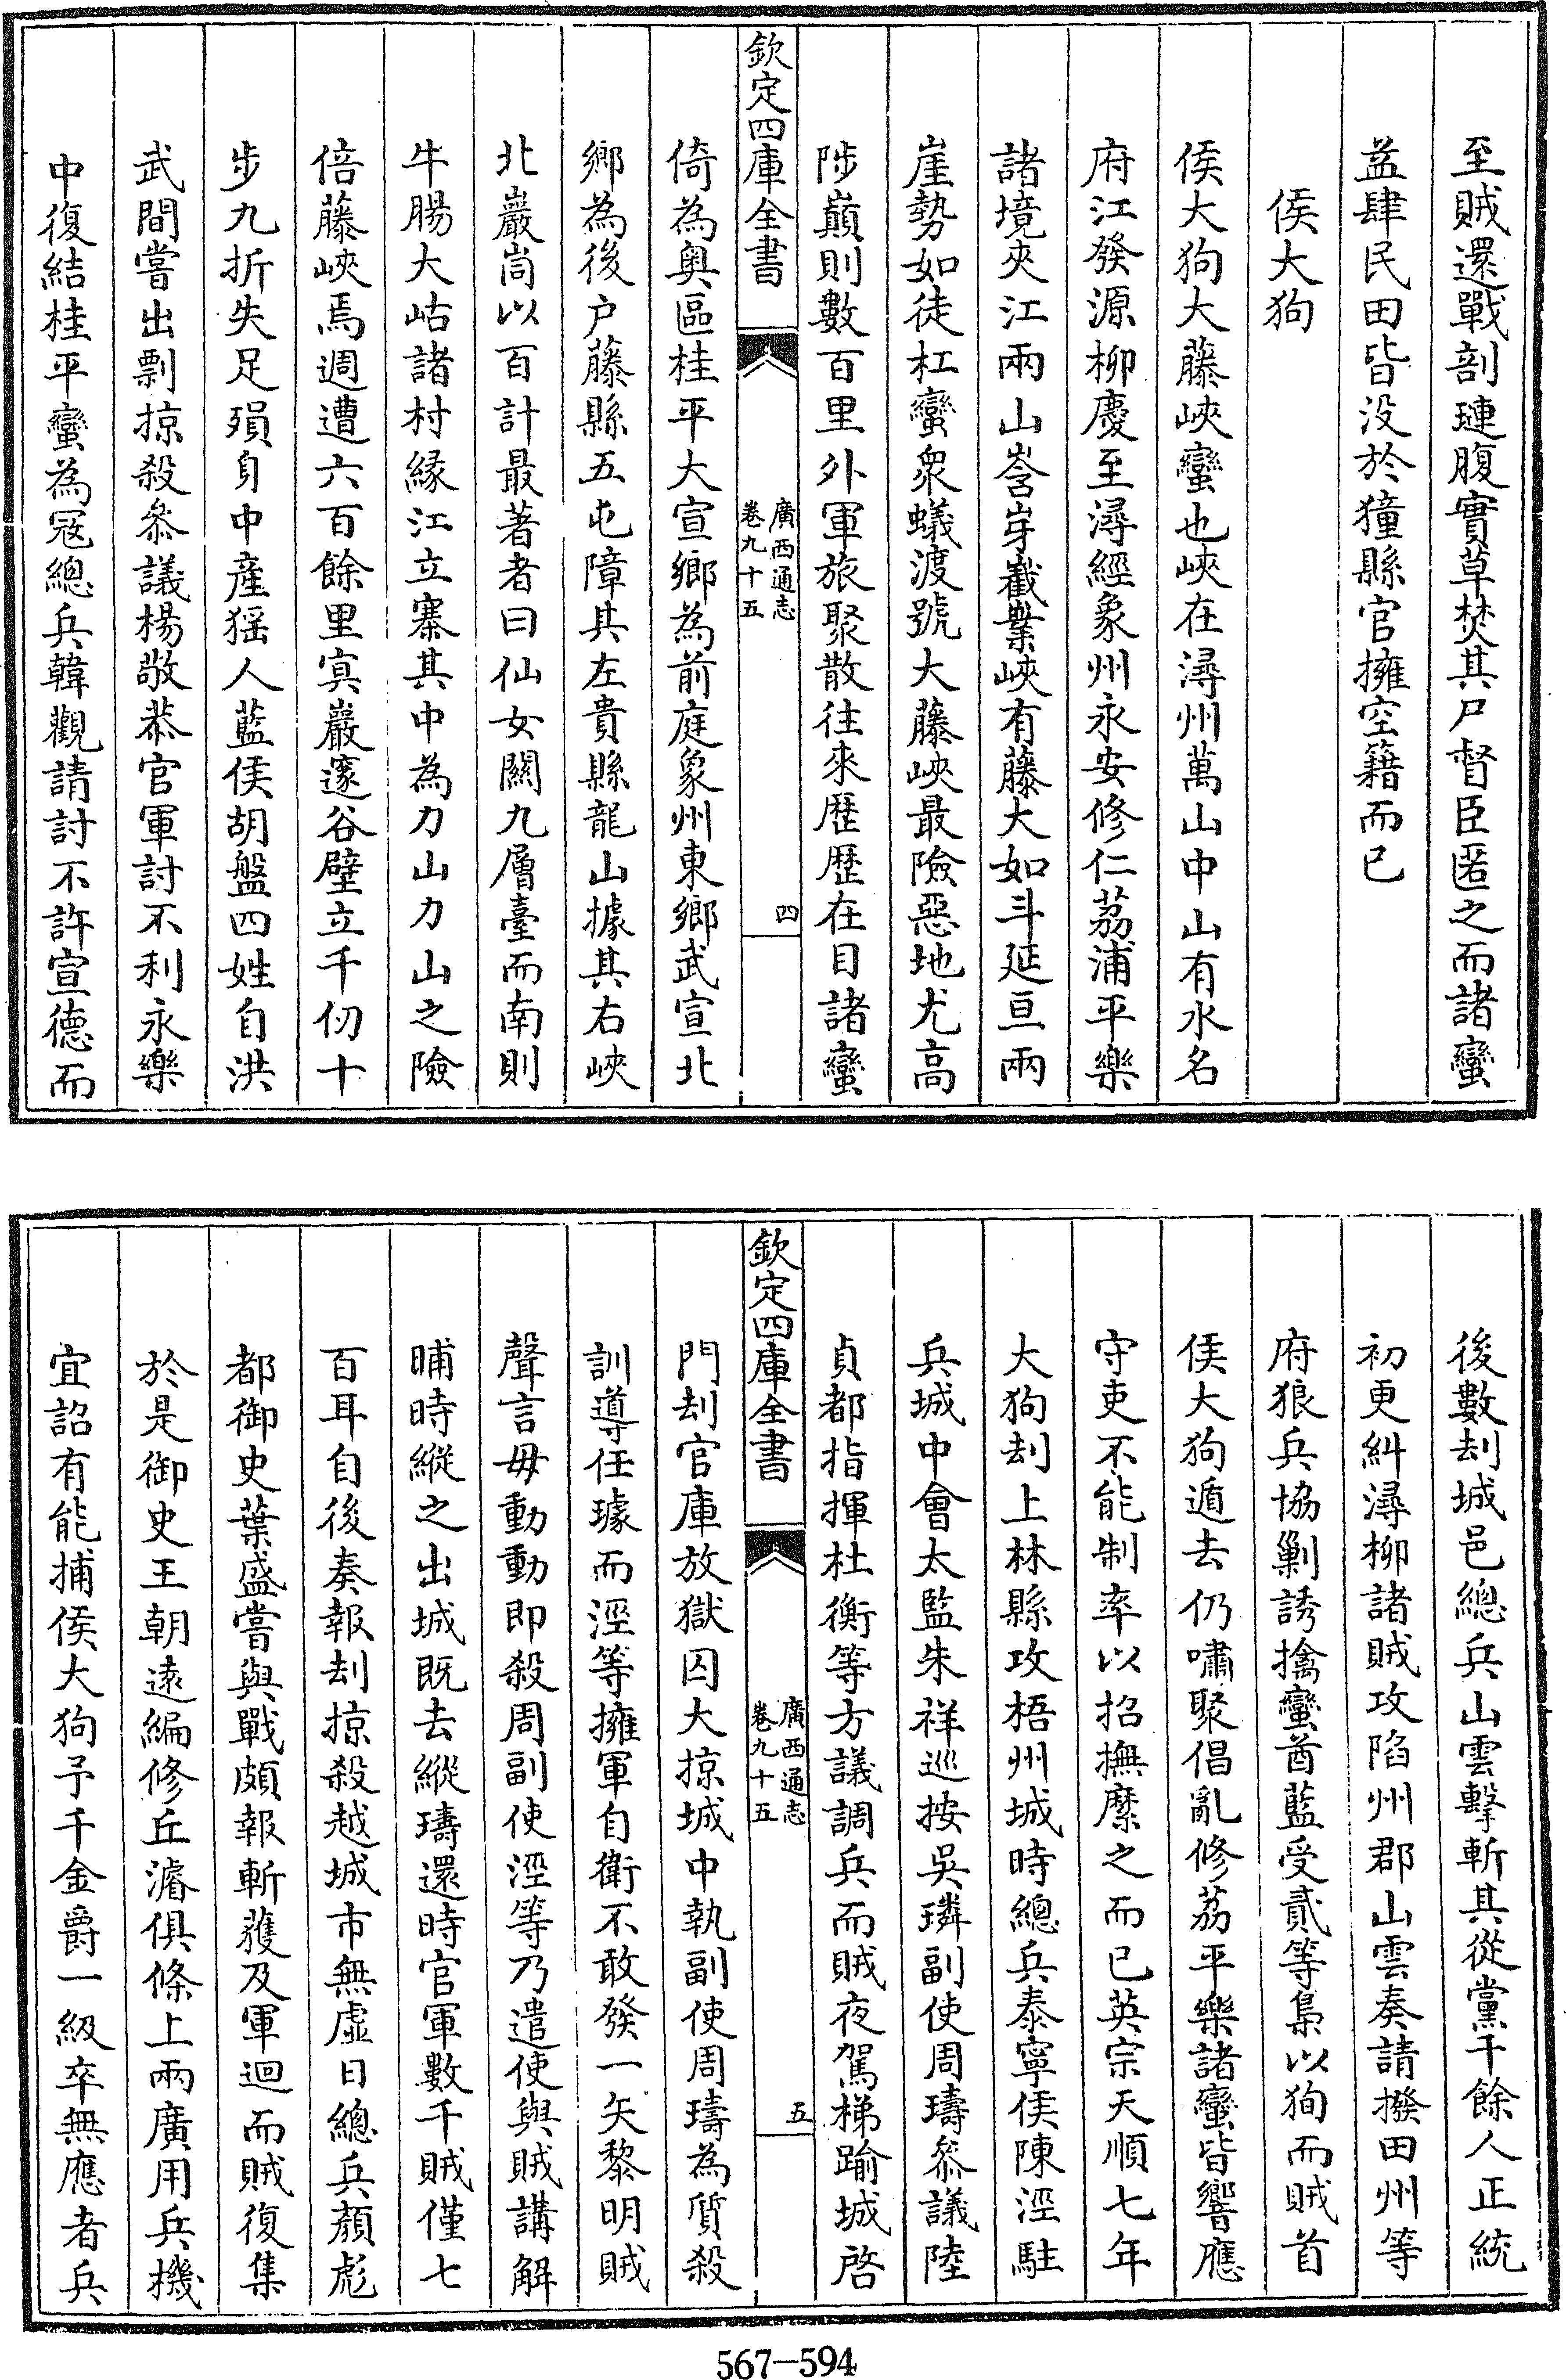 至賊還戰剖璉腹實草焚其尸督臣匿之而諸蠻
益肆民田皆没於獞縣官擁空籍而已
侯大狗
侯大狗大藤峽蠻也峽在潯州萬山中山有水名
府江發源柳慶至潯經象州永安修仁荔浦平樂
諸境夾江兩山㟏岈巀嶪峽有藤大如斗延亘兩
崖勢如徒杠蠻衆蟻渡號大藤峽最險惡地尤高
陟巔則數百里外軍旅聚散往來歴歴在目諸蠻
欽定四庫全書
廣西通志
卷九十五
四
倚為奥區桂平大宣鄉為前庭象州東鄉武宣北
鄉為後户藤縣五屯障其左貴縣龍山據其右峽
北巖峝以百計最著者曰仙女關九層臺而南則
牛腸大岵諸村縁江立寨其中為力山力山之險
倍藤峽焉週遭六百餘里冥巖邃谷壁立千仞十
步九折失足殞身中産猺人藍侯胡盤四姓自洪
武間嘗出剽掠殺叅議楊敬恭官軍討不利永樂
中復結桂平蠻為冦總兵韓觀請討不許宣德而
後數刦城邑總兵山雲擊斬其從黨千餘人正統
初更糾潯柳諸賊攻陷州郡山雲奏請撥田州等
府狼兵協剿誘擒蠻酋藍受貳等梟以狥而賊首
侯大狗遁去仍嘯聚倡亂修荔平樂諸蠻皆響應
守吏不能制率以招撫縻之而已英宗天順七年
大狗刦上林縣攻梧州城時總兵泰寧侯陳涇駐
兵城中會太監朱祥巡按吳璘副使周璹叅議陸
貞都指揮杜衡等方議調兵而賊夜駕梯踰城啓
欽定四庫全書
廣西通志
卷九十五
五
門刦官庫放獄囚大掠城中執副使周璹為質殺
訓導任璩而涇等擁軍自衛不敢發一矢黎明賊
聲言毋動動即殺周副使涇等乃遣使與賊講解
晡時縱之出城既去縱璹還時官軍數千賊僅七
百耳自後奏報刦掠殺越城市無虛日總兵顏彪
都御史葉盛嘗與戰頗報斬蒦及軍迴而賊復集
於是御史王朝逺編修丘濬俱條上兩廣用兵機
宜詔有能捕侯大狗予千金爵一級卒無應者兵
567-594